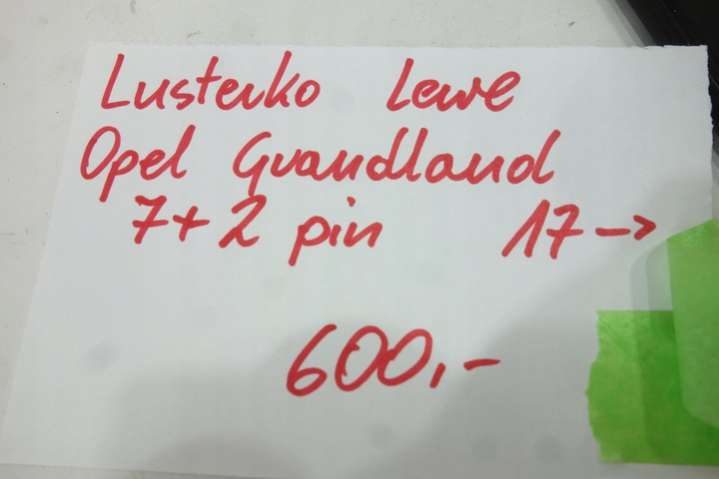 Lusterko Lewe
Opel Grandland
7+2 pin 17->
600,-